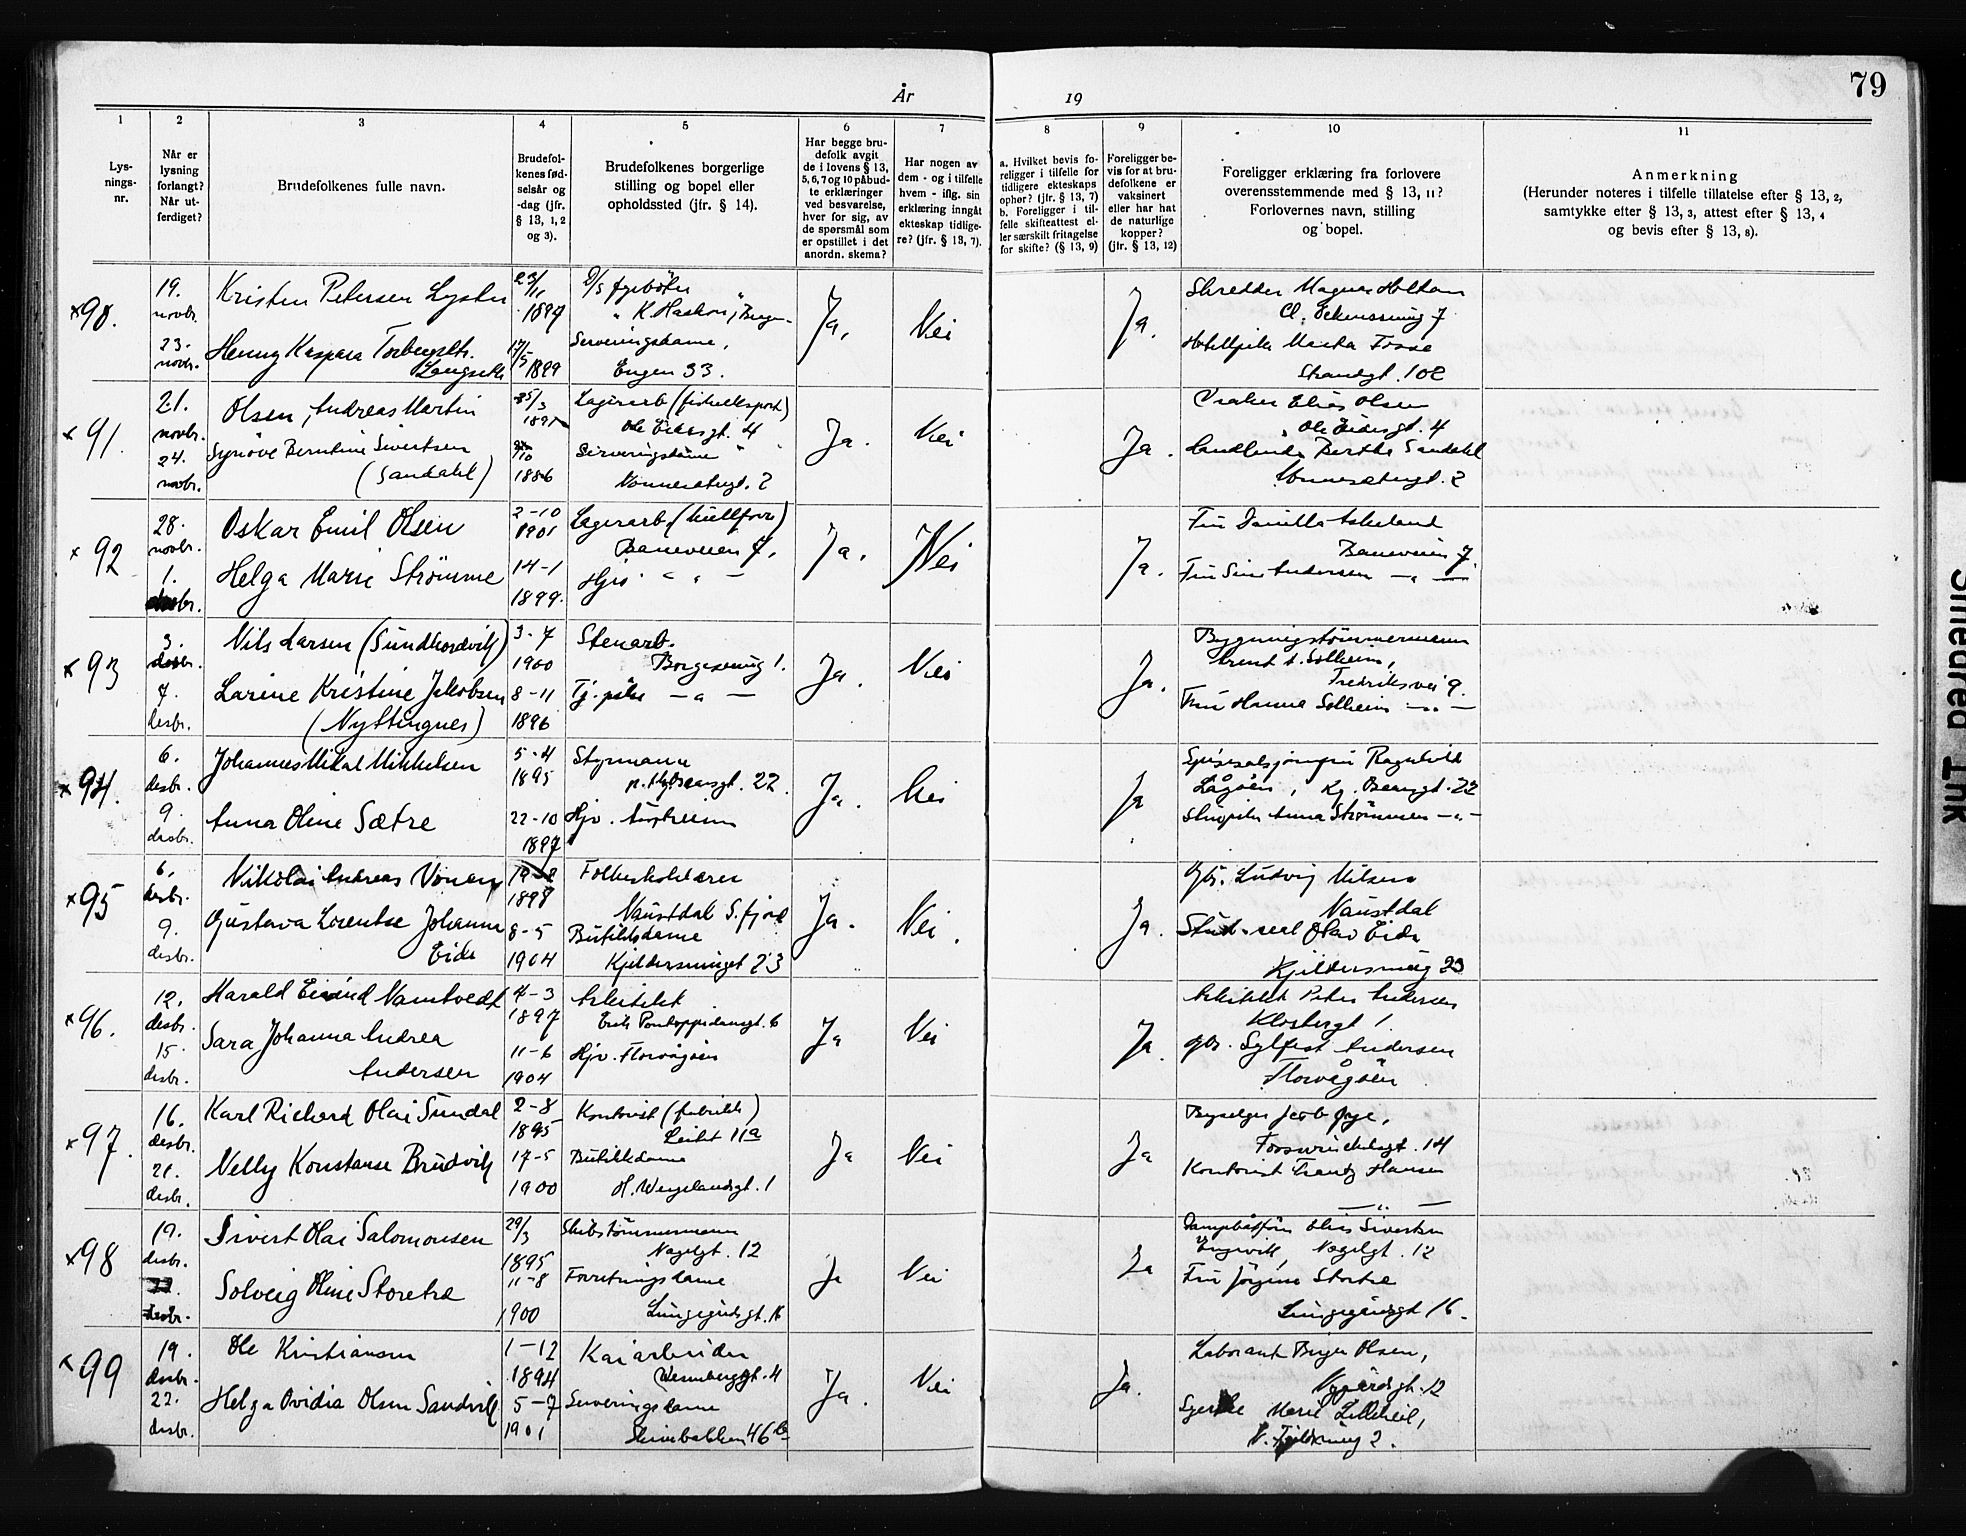 79
År
19
1
2
3
4
5
6
7
8
9
10
11
Lys-
nings-
nr.
Når er
lysning
forlangt?
Når ut-
ferdiget?
Brudefolkenes fulle navn.
Brudefol-
kenes fød-
selsår og
-dag (jfr.
§ 13, 1, 2
og 3).
Brudefolkenes borgerlige
stilling og bopel eller
opholdssted (jfr. § 14).
Har begge bru-
defolk avgit
de i lovens § 13,
5, 6, 7 og 10 påbud-
te erklæringer
ved besvarelse,
hver for sig, av
de spørsmål som
er opstillet i det
anordn. skema?
Har nogen av
dem - og i tilfelle
hvem - iflg. sin
erklæring inngåt
ekteskap tidlige-
re? (jfr. § 13, 7).
a. Hvilket bevis fo-
religger i tilfelle for
tidligere ekteskaps
ophør? (jfr. § 13, 7)
b. Foreligger i til-
felle skifteattest el-
ler særskilt fritagelse
for skifte? (§ 13, 9)
Foreligger be-
vis for at bru-
defolkene er
vaksinert
eller har hat
de naturlige
kopper?
(jfr. § 13, 12)
Foreligger erklæring fra forlovere
overensstemmende med § 13, 11?
Forlovernes navn, stilling
og bopel.
Anmerkning
(Herunder noteres i tilfelle tillatelse efter § 13, 2,
samtykke efter § 13, 3, attest efter § 13, 4
og bevis efter § 13, 8).
x 90.
19.
novbr.
23.
novbr.
Kristen Petersen Lyster
Henny Kaspara Torbergsdtr.
Langseth
23/11
1897
17/5
1899
D/S fyrbøter
"K. Haakon", Bergen
Serveringsdame,
Engen 33.
Ja,
Nei
Ja.
Skredder Magnus Holtan
7
Hotellpike Marta Fosse
Strandgt. 102
x 91.
21.
novbr.
24.
novbr.
Olsen, Andreas Martin
Synøve Berntine Sivertsen
(Sandahl)
25/3
10
1886
Lagerarb (fiskeeksport)
Ole Eidesgt. 4
Serveringsdame
2
Ja.
Nei
Ja.
Vraker Elias Olsen
Ole Eidesgt. 4
Handlende Berthe Sandahl
2
x 92
28.
novbr.
1.
desbr.
Oskar Emil Olsen
Helga Marie Strømme
2-10
1901
14-1
1899.
Lagerarb. (kullforr)
Baneveien 7,
Hjv. - " -
Ja.
Nei
Ja.
Fru Tomilla Askeland
Baneveien 7.
Fru Sina Andersen - " -
x 93
3.
desbr.
7.
desbr.
Nils Larsen (Sundhordvik)
Larine Kristine Jakobsen
(Nyttingnes)
3-7
1900
8-11
1896
Stenarb.
1.
Tj. pike - " -
Ja.
Nei
Ja.
Bygningstømmermann
Arent A. Solheim,
Fredriksvei 9.
Fru Hanna Solheim - " -
x 94.
6.
desbr.
9.
desbr.
Johannes Mikal Mikkelsen
Anna Oline Sætre
5-4
1895
22-10
1897
Styrmann
22.
Hjv. Austrheim
Ja.
Nei
Ja
Spisesalsjomfru Ragnhild
Lågøen, Kg. Oscarsgt. 22
Anna Strømmen - " -
x 95
6.
desbr.
9.
desbr.
Nikolai Andreas Vonen
Gustava Lorentse Johanne
Eide
1898
8-5
1904
Folkeskolelærer
Naustdal S. fjord
Butikkdame
Kjeldersmuget 23
Ja.
Nei.
Ja.
Gbr. Ludvig Nilsen
Naustdal
Stud. real Olav Eide
Kjeldersmug 23
x 96.
12.
desbr.
15.
desbr.
Harald Eivind Namtvedt
Sara Johanna Andrea
Andersen
4-3
1897
11-6
1904
Arkitekt
Erik Pontoppidansgt. 6
Hjv. Florvågøen
Ja
Nei
Ja.
Arkitekt Peter Andersen
Klostergt 1.
gbr. Sylfest Andersen
Florvågøen
x 97.
16.
desbr.
21.
desbr.
Karl Richard Olai Sundal
Nelly Konstanse Brudvik
2-8
1895
17-5
1900
Kontorist (fabrikk)
Leitet 11a
Butikkdame
H. Wergelandsgt. 1
Ja
Nei
Ja
Byselger Jacob Øye,
14
Kontorist Frantz Hansen
- " -
x 98
19.
desbr.
22.
desbr.
Sivert Olai Salomonsen
Solveig Oline Storetræ
29/3
1895
11-8
1900
Skibstømmermann
Nagelgt. 12
Forretningsdame
Lungegårdsgt. 16
Ja
Nei
Ja
Dampbåtfører Elias Sivertsen
Engevik, Nagelgt. 12
Fru Jørgine Stortræ
Lungegårdsgt 16.
x 99
19.
desbr.
22.
desbr.
Ole Kristiansen
Helga Ovidia Olsen Sandvik
1-12
1894
5-7
1901
Kaiarbeider
4
Serveringsdame
Skivebakken 46 b
Ja.
Nei
Ja.
Laborant Birger Olsen,
Nygårdsgt. 12
Marie Lilleheil,
2.
Smedrea Ink